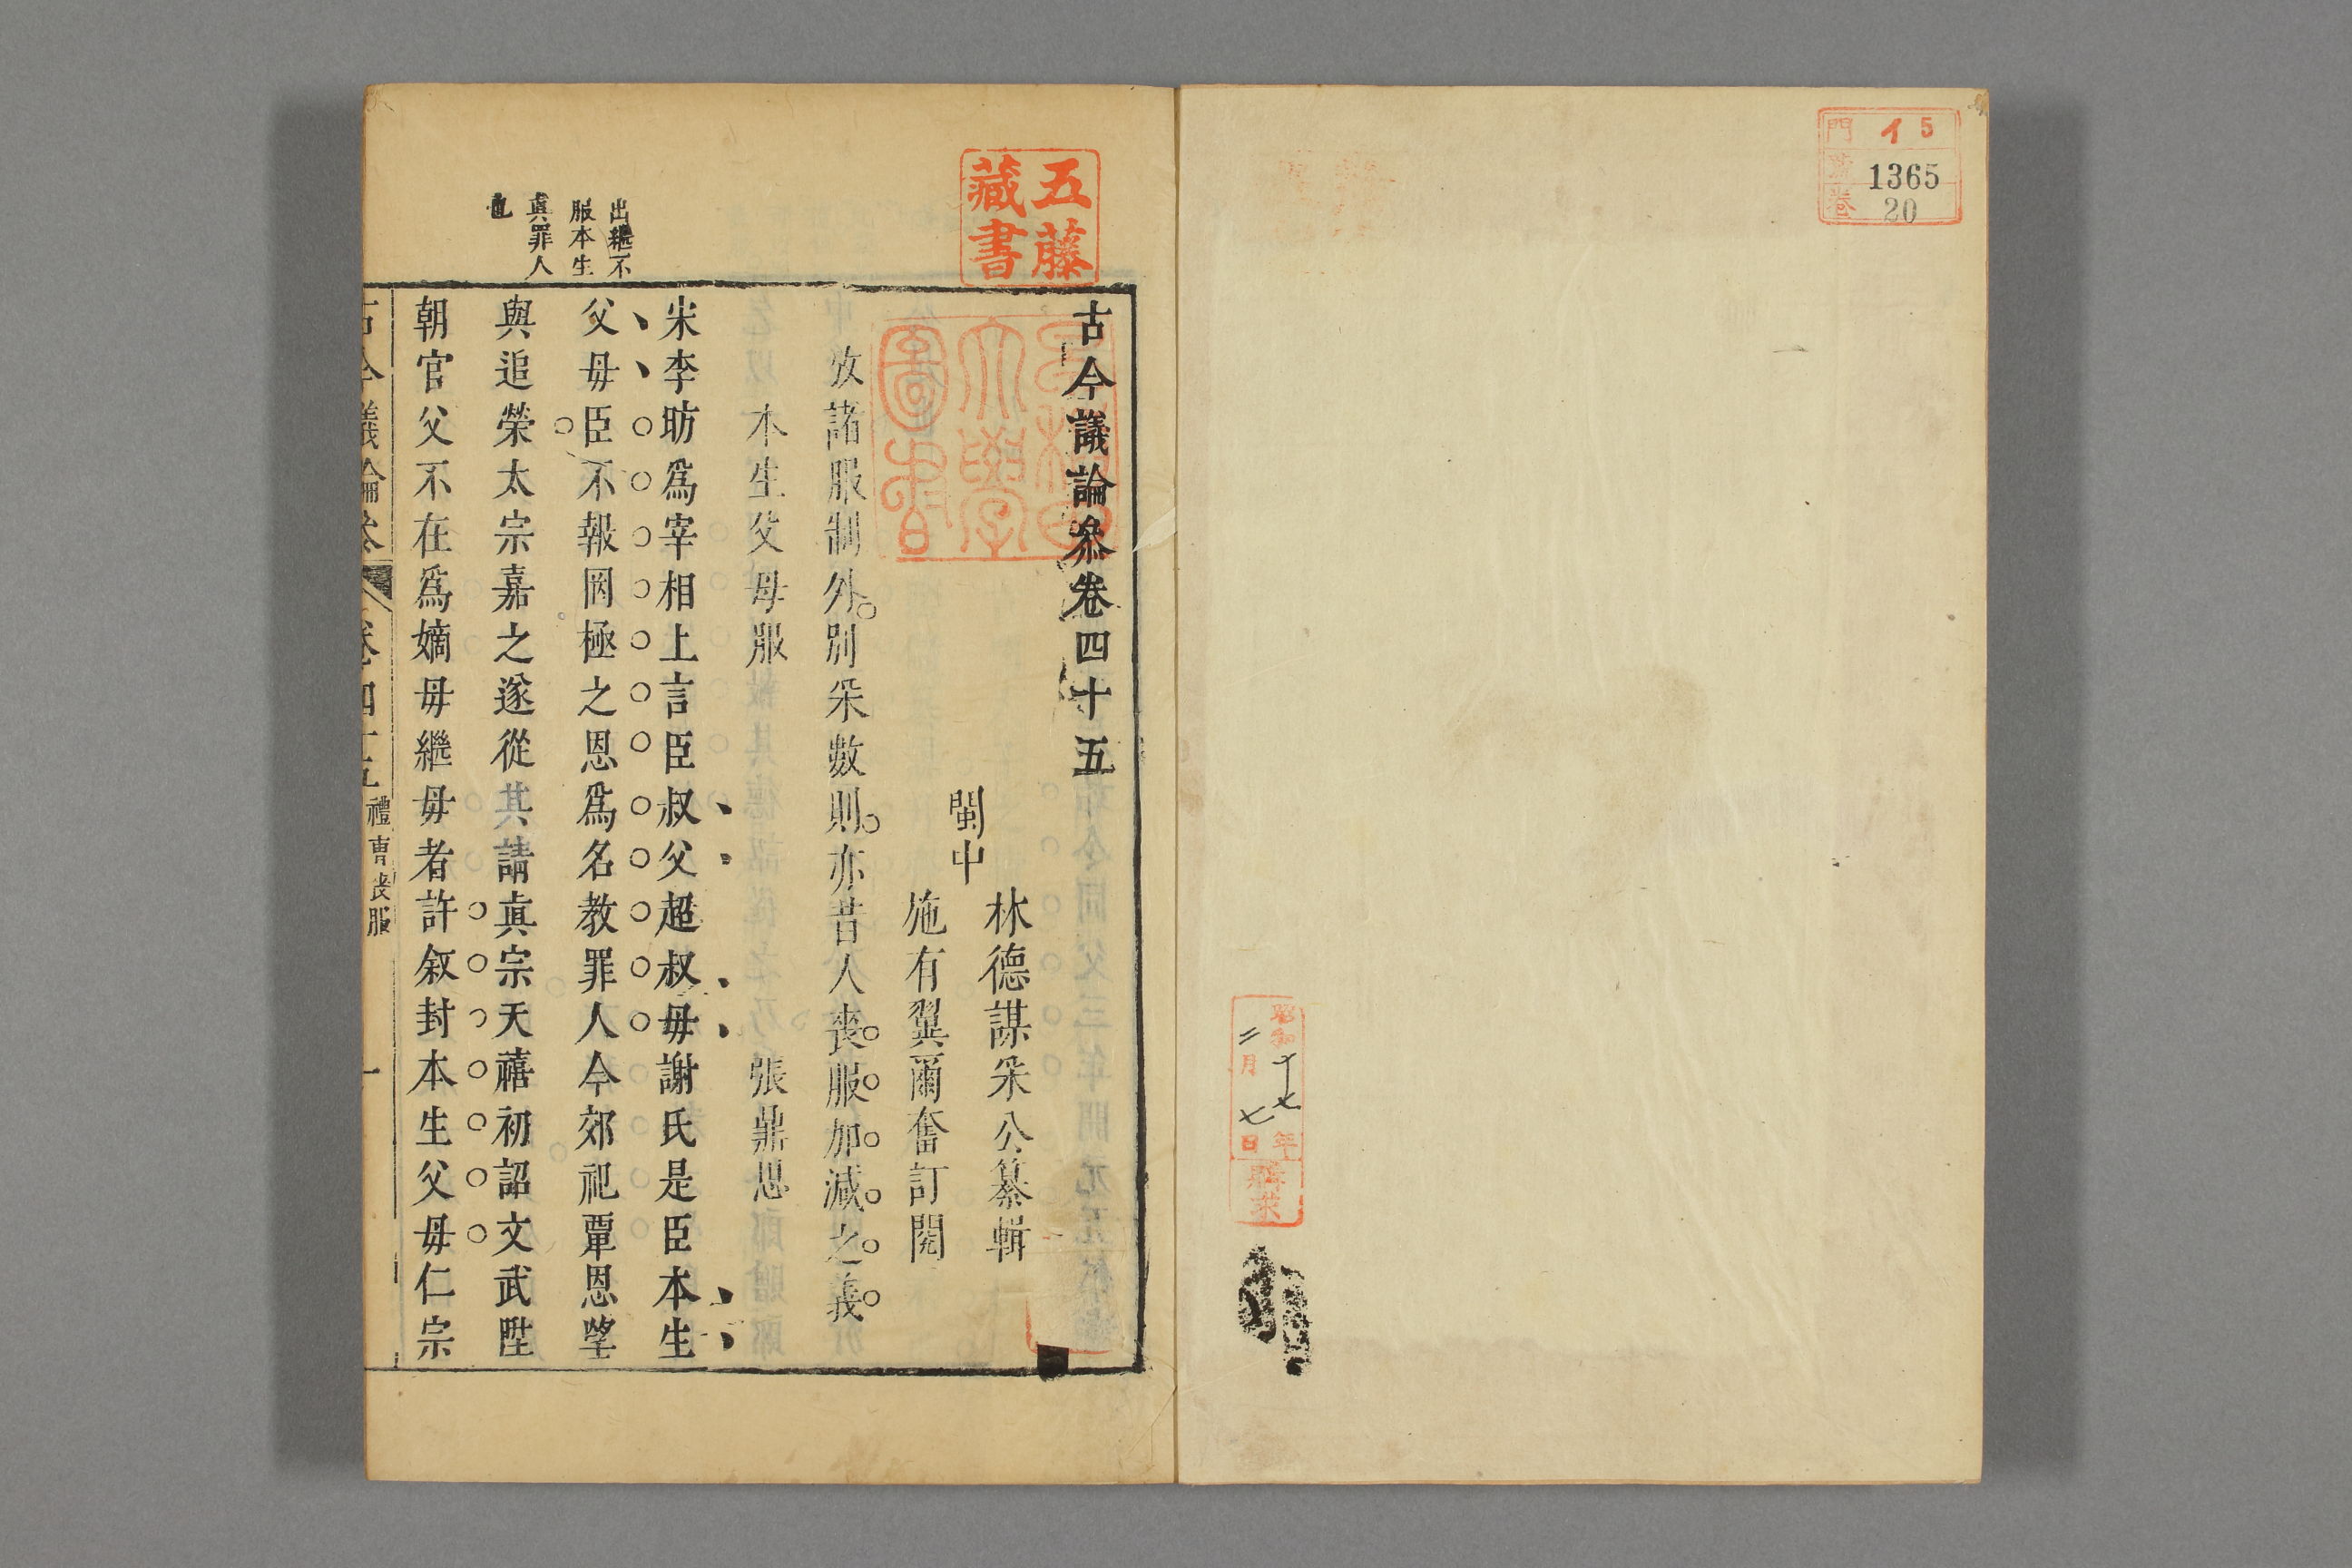 門 イ 5
號 1365
卷 20
昭和十七年
二月七日
購求
五藤
藏書
古今議論叅卷四十五
閩中
林德謀采公纂輯
施有翼爾奮訂閱
攷諸服制外別采數則亦昔人喪服加減之義
本生父母服
張鼎思
宋李昉爲宰相上言臣叔父超叔母謝氏是臣本生
父母臣不報罔極之恩爲名教罪人今郊祀覃恩望
與追榮太宗嘉之遂從其請眞宗天禧初詔文武陞
朝官父不在爲嫡母繼母者許叙封本生父母仁宗
出繼不
服本生
眞罪人
也
古今議論叅
卷四十五
禮曹喪服
一